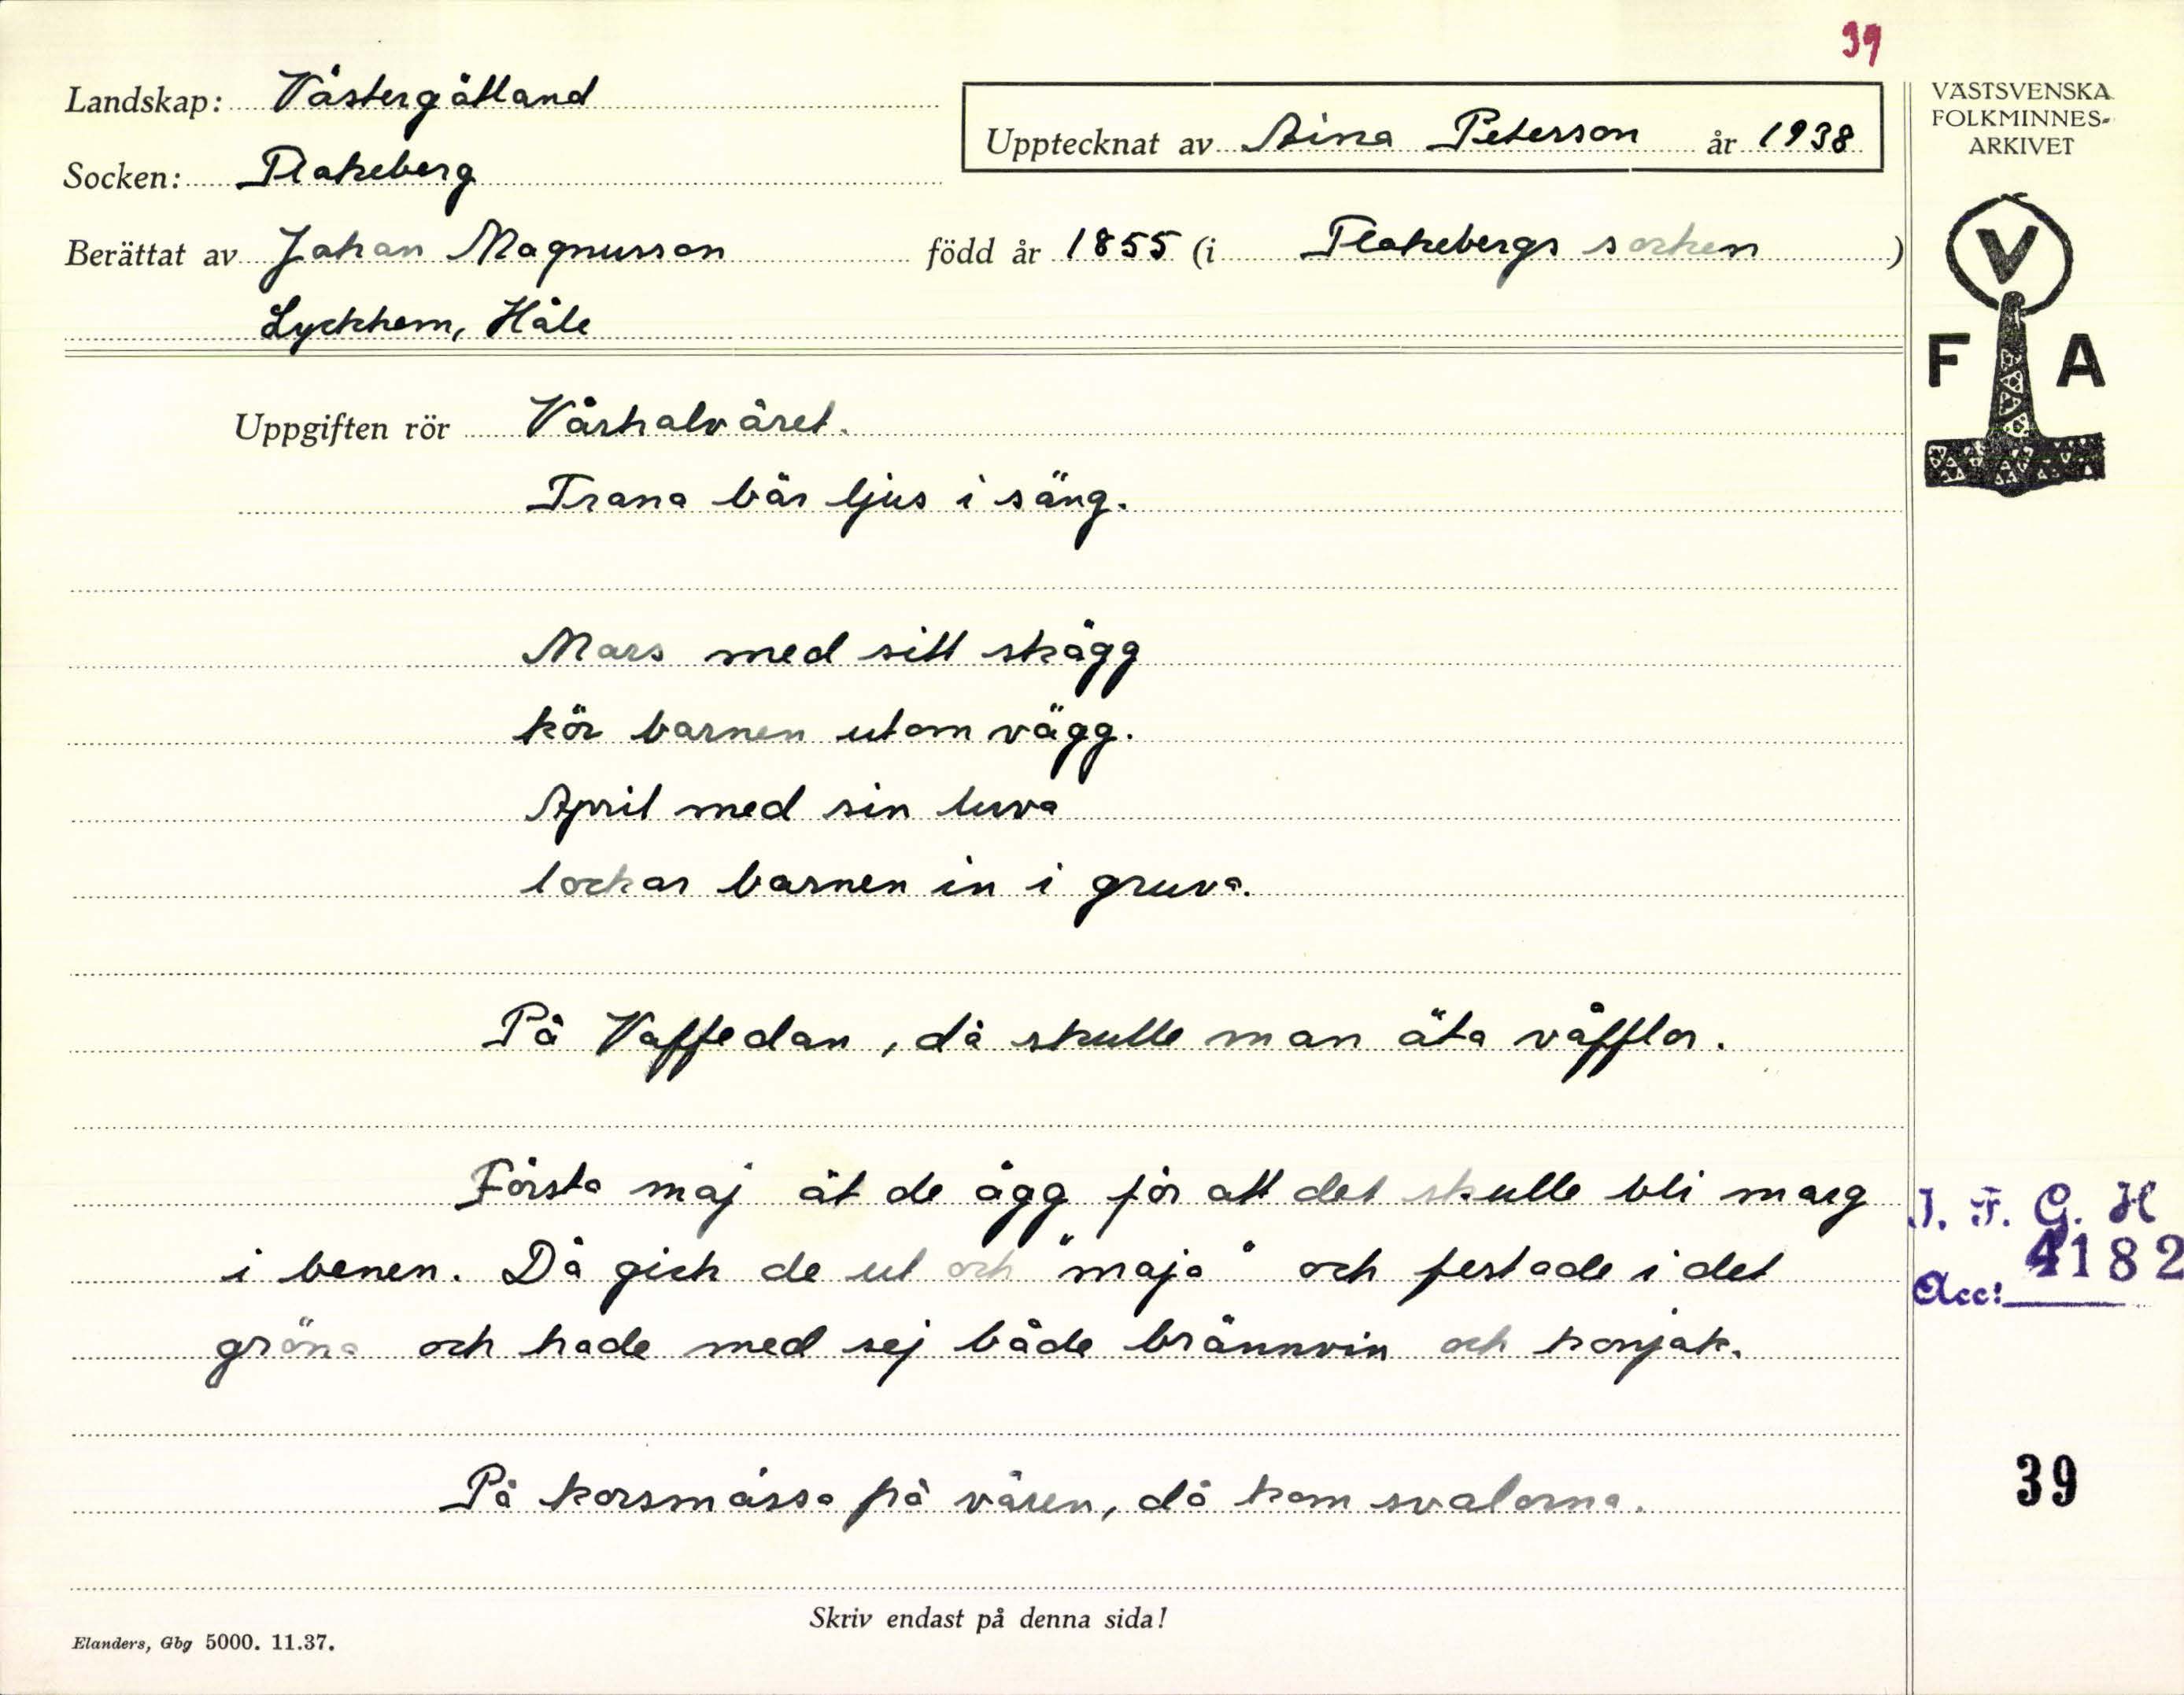 39
Landskap: Västergötland
Upptecknat av Aina Peterson år 1938
VÄSTSVENSKA
FOLKMINNES-
ARKIVET
Socken: Flakeberg
Berättat av Johan Magnusson född år 1855 (i Flakebergs socken)
Lyckhem, Håle
V
F A
Uppgiften rör Vårhalvåret.
Trana bär ljus i säng.
Mars med sitt skägg
kör barnen utom vägg.
April med sin luva
lockar barnen in i gruva.
På Vaffedan, då skulle man äta våfflor.
Första maj åt de ägg för att det skulle bli marg
i benen. Då gick de ut och "maja" och festade i det
gröna och hade med sej både brännvin och konjak.
På korsmässa på våren, då kom svalorna.
I. F. G. H
4182
Acc:
39
Skriv endast på denna sida!
Elanders, Gbg 5000. 11.37.